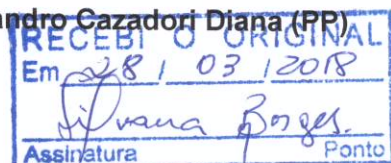 andro Cazadori Diana (PP)
RECEBI O ORIGINAL
Em 28 / 03 / 2018
Silvana Borges.
Assinatura Ponto